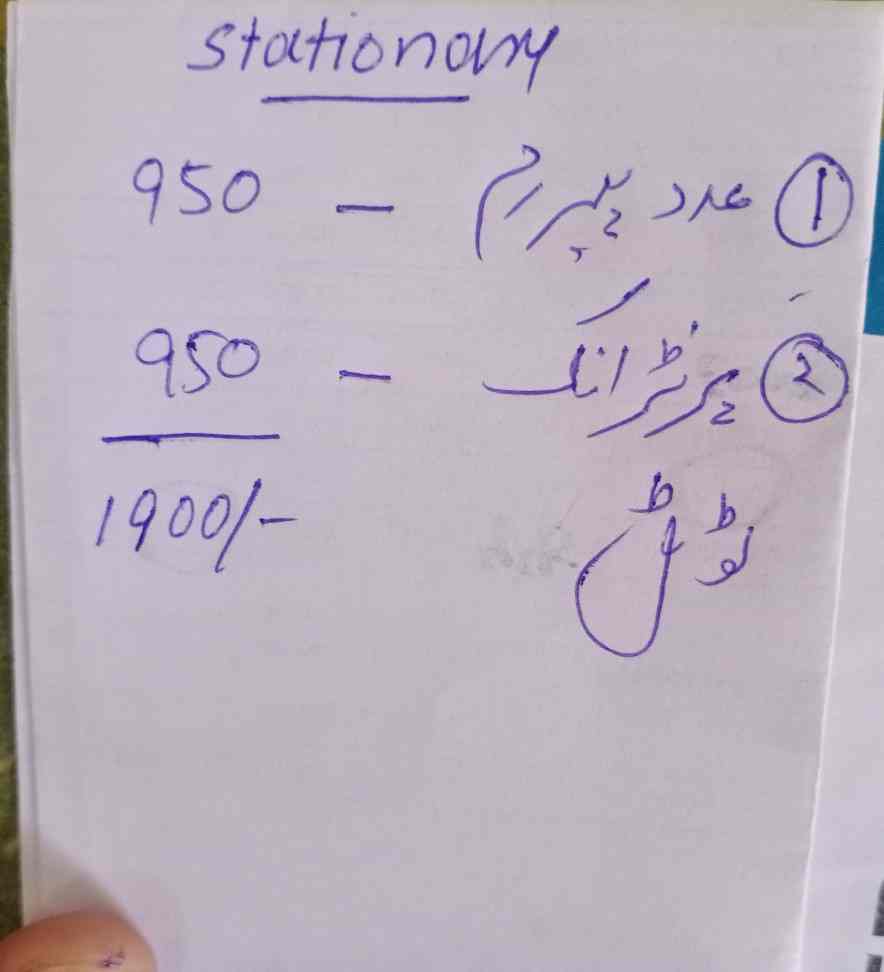 Stationary
① عدد پیپر رم — 950
② پرنٹر انک — 950
ٹوٹل 1900/-